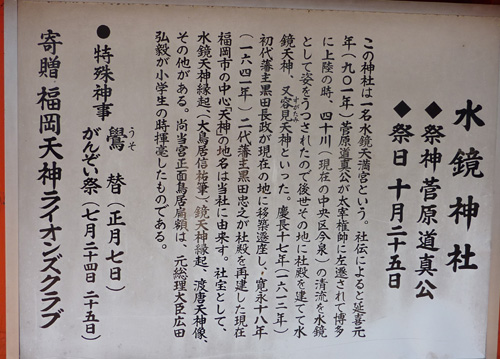 水鏡神社
◆祭神 菅原道真公
◆祭日 十月二十五日
この神社は一名水鏡天満宮という。社伝によると延喜元
年(九〇一年)菅原道真公が太宰権師に左遷されて博多
に上陸の時、四十川(現在の中央区今泉)の清流を水鏡
として姿をうつされたので後世その地に社殿を建てて水
鏡天神、又容見天神といった。慶長十七年(一六一二年)
すがたみ
初代藩主黒田長政が現在の地に移築造座し、寛永十八年
(一六四一年)二代藩主黒田忠之が社殿を再建した現在
福岡市の中心「天神」の地名は当社に由来す。社宝として、
水鏡天神縁起(大鳥居信祐筆)、鏡天神縁起、渡唐天神像、
その他がある。尚当宮正面鳥居扁額は、元総理大臣広田
弘毅が小学生の時揮毫したものである。
●特殊神事 鷽替(正月七日)
うそ かえ
がんぞい祭(七月二十四日 二十五日)
寄贈 福岡天神ライオンズクラブ